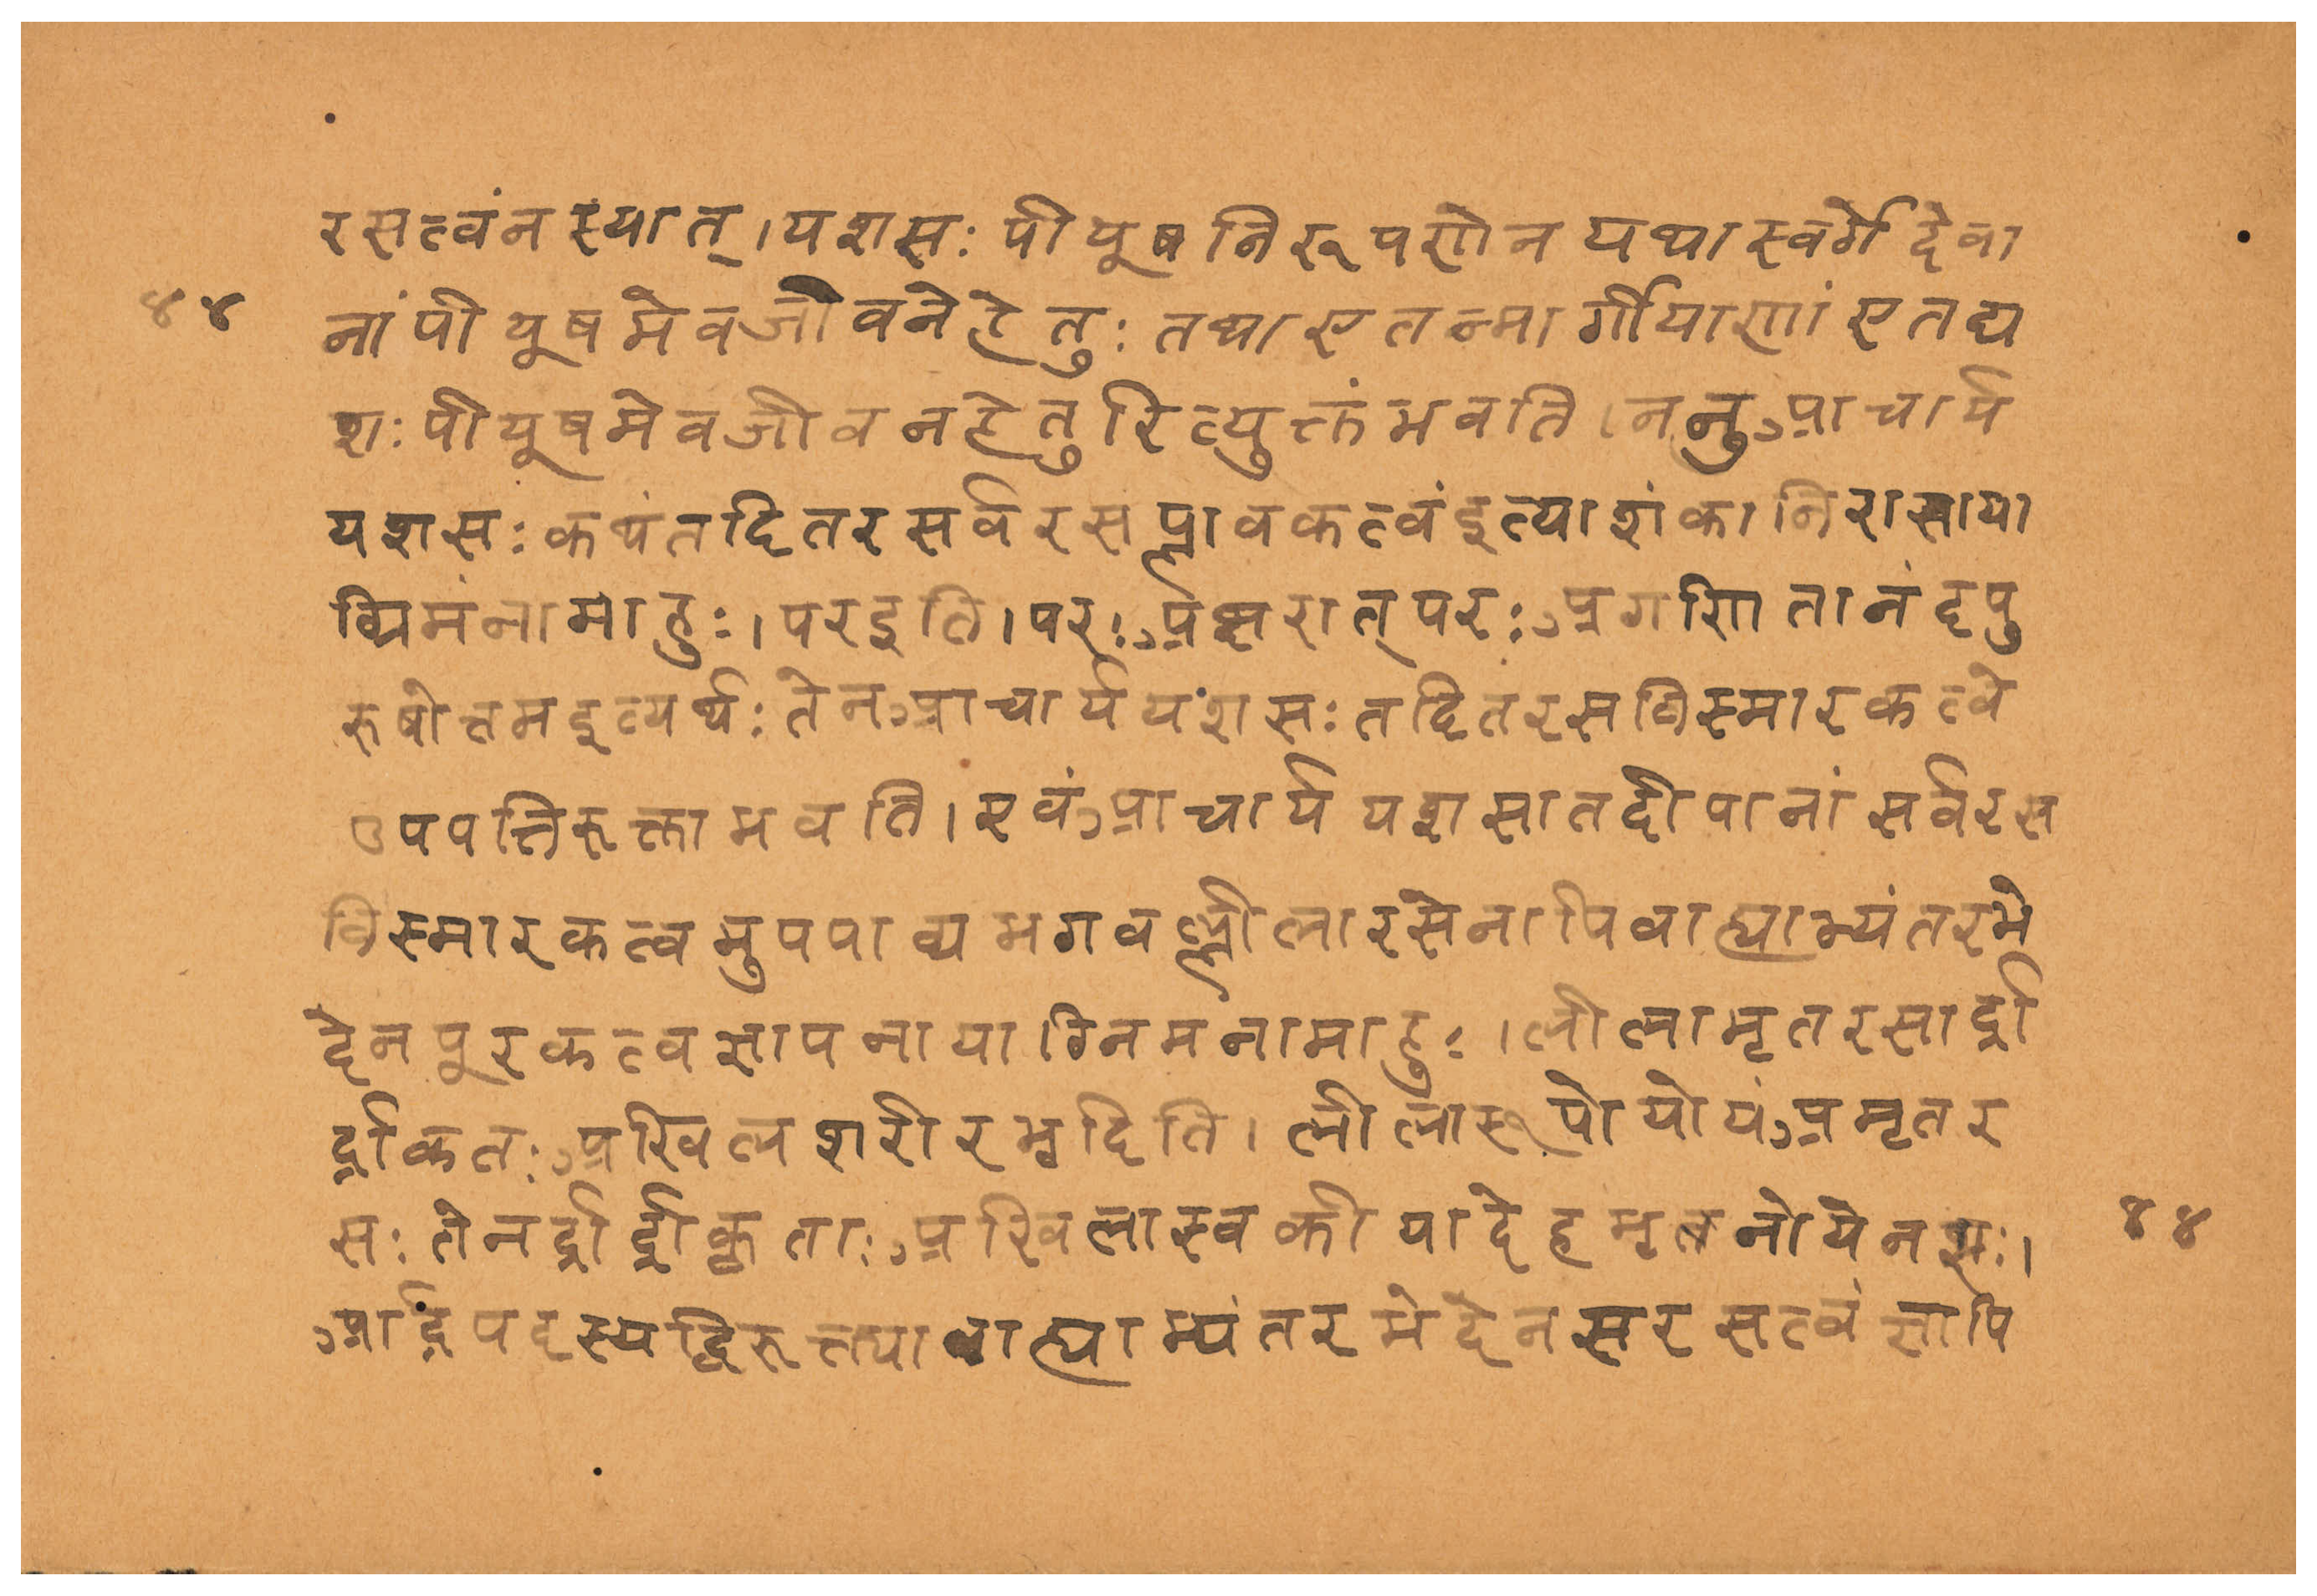 रसत्वंनस्यात्।यशसः पीयूषनिरूपणेन यथास्वर्गेदेवा
४४ नांपीयूषमेवजीवनेहेतुः तथाएतन्मार्गीयाणांएतद्य
शःपीयूषमेवजीवनहेतुरित्युक्तंभवति।ननुआचार्य
यशसःकथंतदितरसर्वरसप्लावकत्वंइत्याशंकानिरासाया
ग्रिमंनामाहुः।परइति।परःअक्षरात्परःअगणितानंदपु
रुषोत्तमइत्यर्थःतेनआचार्ययशसःतदितरसविस्मारकत्वे
उपपत्तिरुक्ताभवति।एवंआचार्ययशसातदीयानांसर्वरस
विस्मारकत्वमुपपाद्यभगवल्लीलारसेनापिवाह्याभ्यंतरभे
देनपूरकत्वज्ञापनायाग्रिनमनामाहुः।लीलामृतरसार्द्रा
र्द्रीकतःअखिलशरीरभृदिति।लीलारूपोयोयंअमृतर
सःतेनर्द्रार्द्रीकृताःअखिलास्वकीयादेहभृतनोयेनसः। ४४
आर्द्रपदस्यद्विरुक्त्यावाह्याभ्यंतरभेदेनसरसत्वंज्ञापि